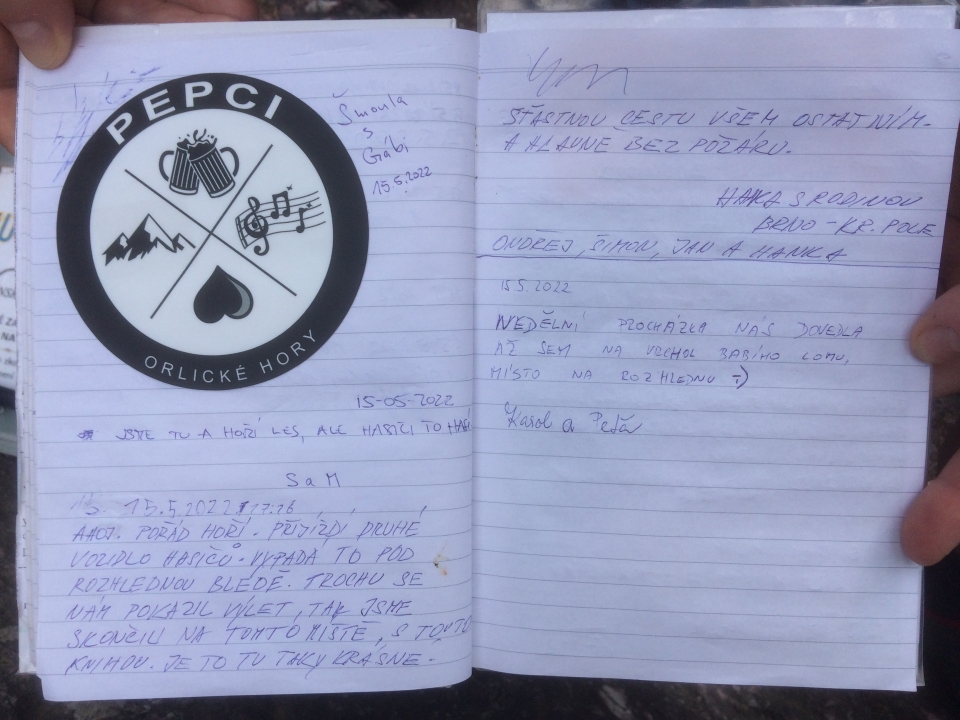 PEPCI
ORLICKÉ HORY
Šmoula
s
Gábi
15.5.2022
15-05-2022
JSTE TU A HOŘÍ LES, ALE HASIČI TO
S a M
15.5.2022 17:26
AHOJ. POŘÁD HOŘÍ. PŘIJÍZDÍ DRUHÉ
VOZIDLO HASIČŮ. VYPADA TO POD
ROZHLEDNOU BLEDĚ. TROCHU SE
NÁM POKAZIL VÝLET, TAK JSME
SKONČILI NA TOMTO MÍSTĚ, S TOUTO
KNIHOU. JE TO TU TAKY KRÁSNÉ.
ŠŤASTNOU CESTU VŠEM OSTATNÍM.
A HLAVNĚ BEZ POŽÁRU.
HANKA S RODINOU
BRNO - KR. POLE
ONDŘEJ, ŠIMON, JAN A HANKA
15.5.2022
NEDĚLNÍ PROCHÁZKA NÁS DOVEDLA
AŽ SEM NA VRCHOL BABÍHO LOMU,
MÍSTO NA ROZHLEDNU :-)
Karol a Peťa